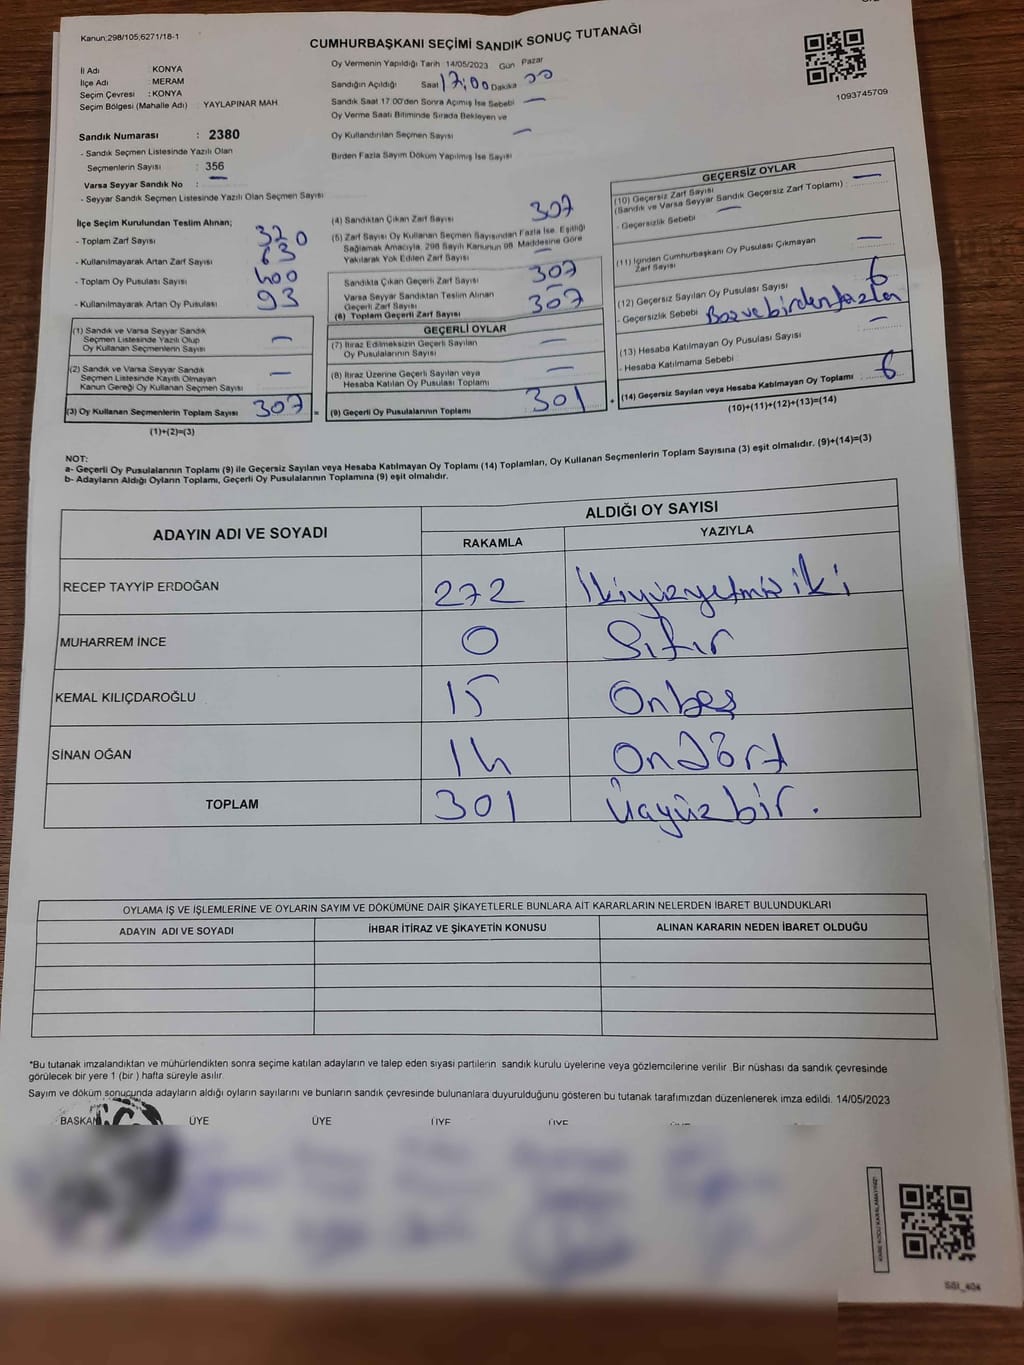 Kanun;298/105,6271/18-1
CUMHURBAŞKANI SEÇİMİ SANDIK SONUÇ TUTANAĞI
1093745709
İl Adı : KONYA
İlçe Adı : MERAM
Seçim Çevresi : KONYA
Seçim Bölgesi (Mahalle Adı) : YAYLAPINAR MAH.
Sandık Numarası : 2380
- Sandık Seçmen Listesinde Yazılı Olan
Seçmenlerin Sayısı : 356
Varsa Seyyar Sandık No : —
- Seyyar Sandık Seçmen Listesinde Yazılı Olan Seçmen Sayısı
Oy Vermenin Yapıldığı Tarih :14/05/2023 Gün Pazar
Sandığın Açıldığı Saat 17:00 Dakika 00
Sandık Saat 17.00'den Sonra Açımış İse Sebebi —
Oy Verme Saati Bitiminde Sırada Bekleyen ve
Oy Kullandırılan Seçmen Sayısı —
Birden Fazla Sayım Döküm Yapılmış İse Sayısı
İlçe Seçim Kurulundan Teslim Alınan;
- Toplam Zarf Sayısı 370
- Kullanılmayarak Artan Zarf Sayısı 63
- Toplam Oy Pusulası Sayısı 400
- Kullanılmayarak Artan Oy Pusulası 93
(1) Sandık ve Varsa Seyyar Sandık
Seçmen Listesinde Yazılı Olup
Oy Kullanan Seçmenlerin Sayısı —
(2) Sandık ve Varsa Seyyar Sandık
Seçmen Listesinde Kayıtlı Olmayan
Kanun Gereği Oy Kullanan Seçmen Sayısı —
(3) Oy Kullanan Seçmenlerin Toplam Sayısı 307
(1)+(2)=(3)
(4) Sandıktan Çıkan Zarf Sayısı 307
(5) Zarf Sayısı Oy Kullanan Seçmen Sayısından Fazla İse, Eşitliği
Sağlamak Amacıyla, 298 Sayılı Kanunun 98. Maddesine Göre
Yakılarak Yok Edilen Zarf Sayısı —
Sandıkta Çıkan Geçerli Zarf Sayısı 307
Varsa Seyyar Sandıktan Teslim Alınan
Geçerli Zarf Sayısı
(6) Toplam Geçerli Zarf Sayısı 307
GEÇERLİ OYLAR
(7) İtiraz Edilmeksizin Geçerli Sayılan
Oy Pusulalarının Sayısı —
(8) İtiraz Üzerine Geçerli Sayılan veya
Hesaba Katılan Oy Pusulası Toplamı —
= (9) Geçerli Oy Pusulalarının Toplamı 301 +
GEÇERSİZ OYLAR
(10) Geçersiz Zarf Sayısı
(Sandık ve Varsa Seyyar Sandık Geçersiz Zarf Toplamı) : —
- Geçersizlik Sebebi —
(11) İçinden Cumhurbaşkanı Oy Pusulası Çıkmayan
Zarf Sayısı —
(12) Geçersiz Sayılan Oy Pusulası Sayısı 6
- Geçersizlik Sebebi Boş ve birden fazla
(13) Hesaba Katılmayan Oy Pusulası Sayısı —
- Hesaba Katılmama Sebebi :
(14) Geçersiz Sayılan veya Hesaba Katılmayan Oy Toplamı 6
(10)+(11)+(12)+(13)=(14)
NOT:
a- Geçerli Oy Pusulalarının Toplamı (9) ile Geçersiz Sayılan veya Hesaba Katılmayan Oy Toplamı (14) Toplamları, Oy Kullanan Seçmenlerin Toplam Sayısına (3) eşit olmalıdır. (9)+(14)=(3)
b- Adayların Aldığı Oyların Toplamı, Geçerli Oy Pusulalarının Toplamına (9) eşit olmalıdır.
ADAYIN ADI VE SOYADI ALDIĞI OY SAYISI
RAKAMLA YAZIYLA
RECEP TAYYİP ERDOĞAN 272 İkiyüzyetmiş iki
MUHARREM İNCE 0 Sıfır
KEMAL KILIÇDAROĞLU 15 Onbeş
SİNAN OĞAN 14 Ondört
TOPLAM 301 Üçyüz bir.
OYLAMA İŞ VE İŞLEMLERİNE VE OYLARIN SAYIM VE DÖKÜMÜNE DAİR ŞİKAYETLERLE BUNLARA AİT KARARLARIN NELERDEN İBARET BULUNDUKLARI
ADAYIN ADI VE SOYADI İHBAR İTİRAZ VE ŞİKAYETİN KONUSU ALINAN KARARIN NEDEN İBARET OLDUĞU
*Bu tutanak imzalandıktan ve mühürlendikten sonra seçime katılan adayların ve talep eden siyasi partilerin sandık kurulu üyelerine veya gözlemcilerine verilir .Bir nüshası da sandık çevresinde
görülecek bir yere 1 (bir ) hafta süreyle asılır.
Sayım ve döküm sonucunda adayların aldığı oyların sayılarını ve bunların sandık çevresinde bulunanlara duyurulduğunu gösteren bu tutanak tarafımızdan düzenlenerek imza edildi. 14/05/2023
BAŞKAN ÜYE ÜYE ÜYE ÜYE
KARE KODU KARALAMAYINIZ!